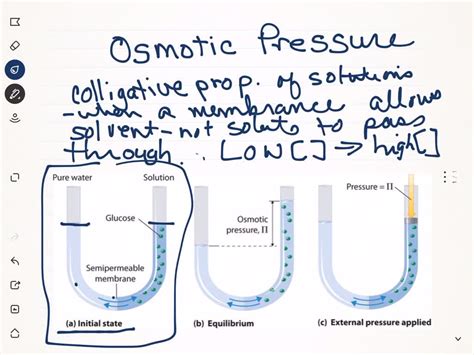 Osmotic Pressure
Colligative prop. of solutions
- when a membrance allows
solvent - not solute to pass
through ∴ LOW [ ] → high [ ]
Pure water
Solution
Glucose
Semipermeable
membrane
(a) Initial state
Osmotic
pressure, Π
(b) Equilibrium
Pressure = Π
(c) External pressure applied